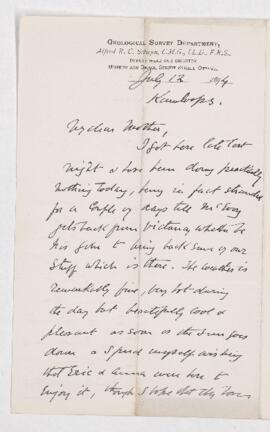 GEOLOGICAL SURVEY DEPARTMENT,
Alfred R. C. Selwyn, C.M.G., LL.D., F.R.S.,
July 12 1894
Kamloops.
My dear Mother,
I got here late last
night & have been doing practically
nothing today, being in fact stranded
for a couple of days till McEvoy
gets back from Victoria, whither he
has gone to bring back some of our
stuff which is there. The weather is
remarkably fine, very hot during
the day but beautifully cool &
pleasant as soon as the sun goes
down & I find myself wishing
that Eric & Anna were here to
enjoy it, though I hope that they have